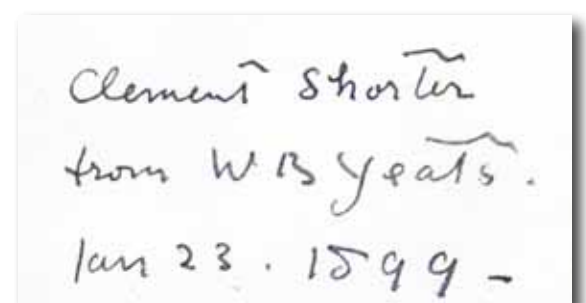 Clement Shorter
from W B Yeats.
Jan 23. 1899 -